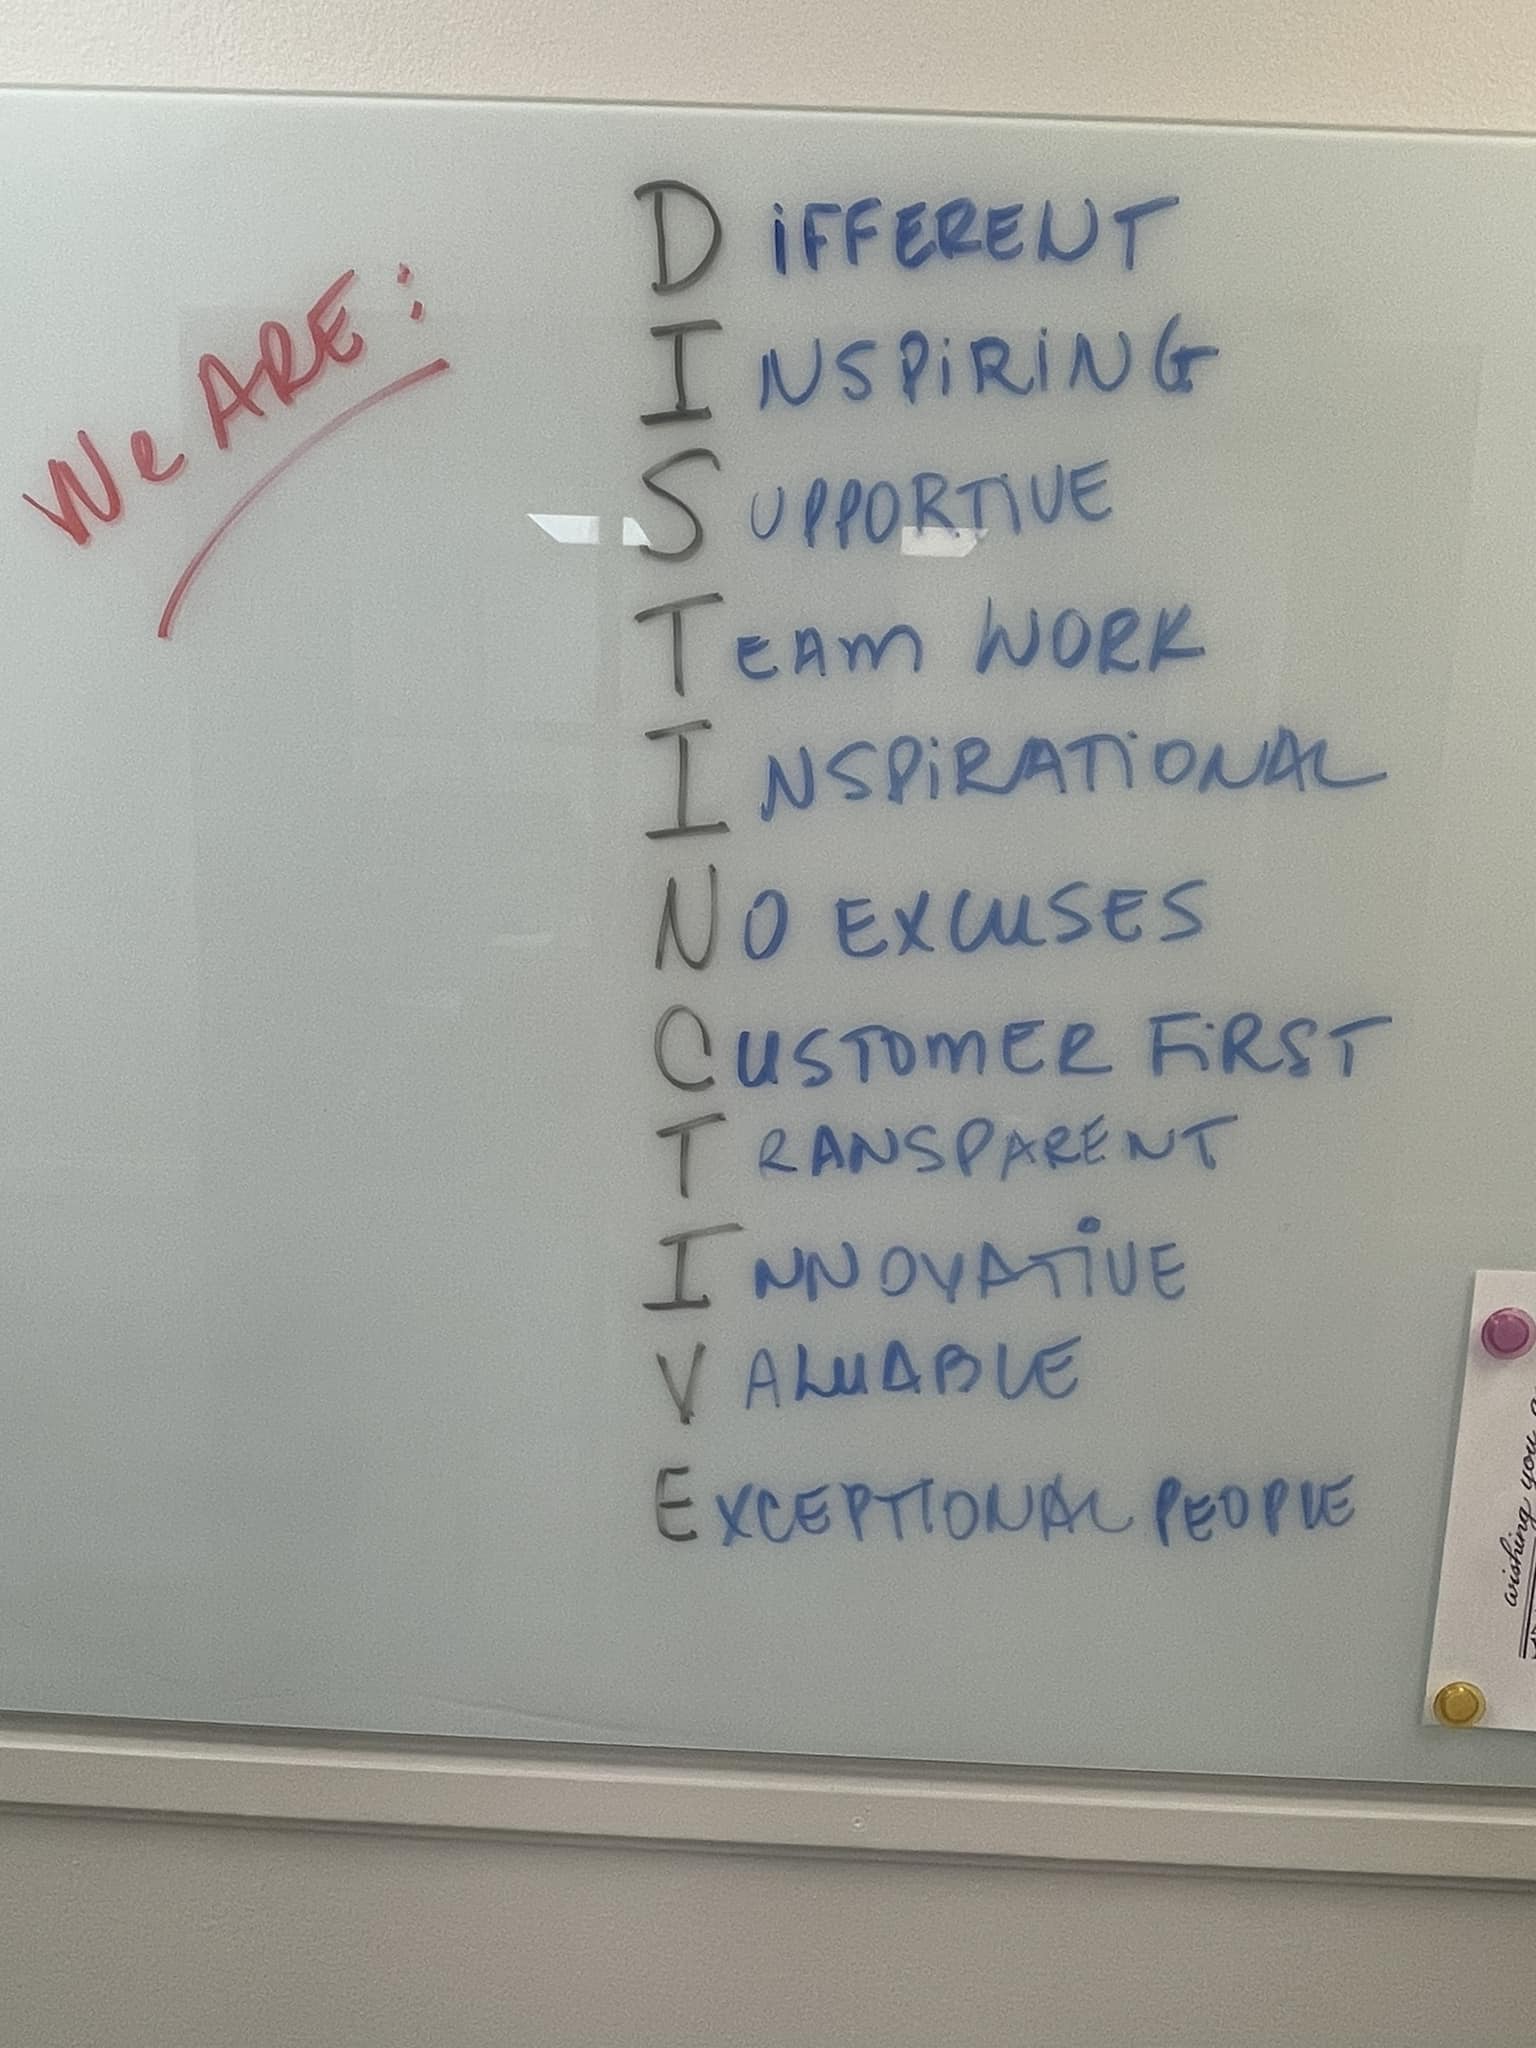 We ARE:
DiFFERENT
INSPiRiNG
SUPPORTiVE
TEAM WORK
INSPiRATiONAL
NO EXCUSES
CUSTOMER FiRST
TRANSPARENT
INNOVATiVE
VALUABLE
EXCEPTIONAL PEOPLE
wishing you